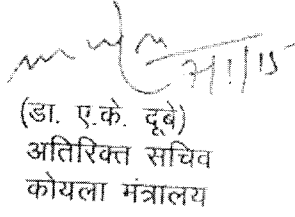 7/1/15
(डा. ए.के. दूबे)
अतिरिक्त सचिव
कोयला मंत्रालय